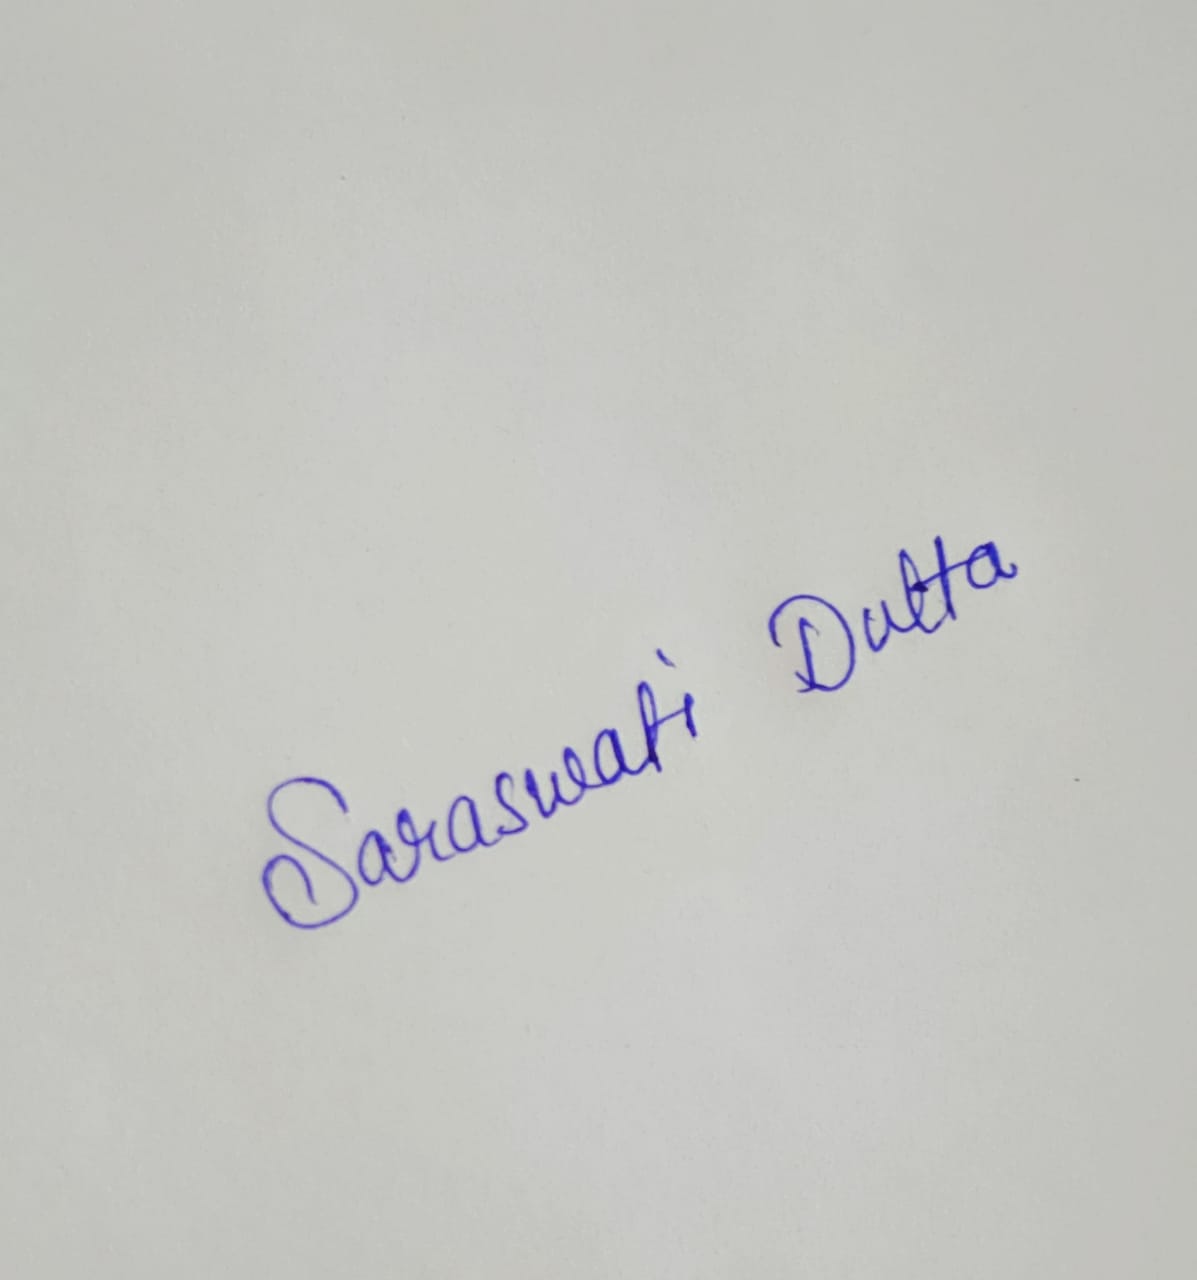 Saraswati Dutta